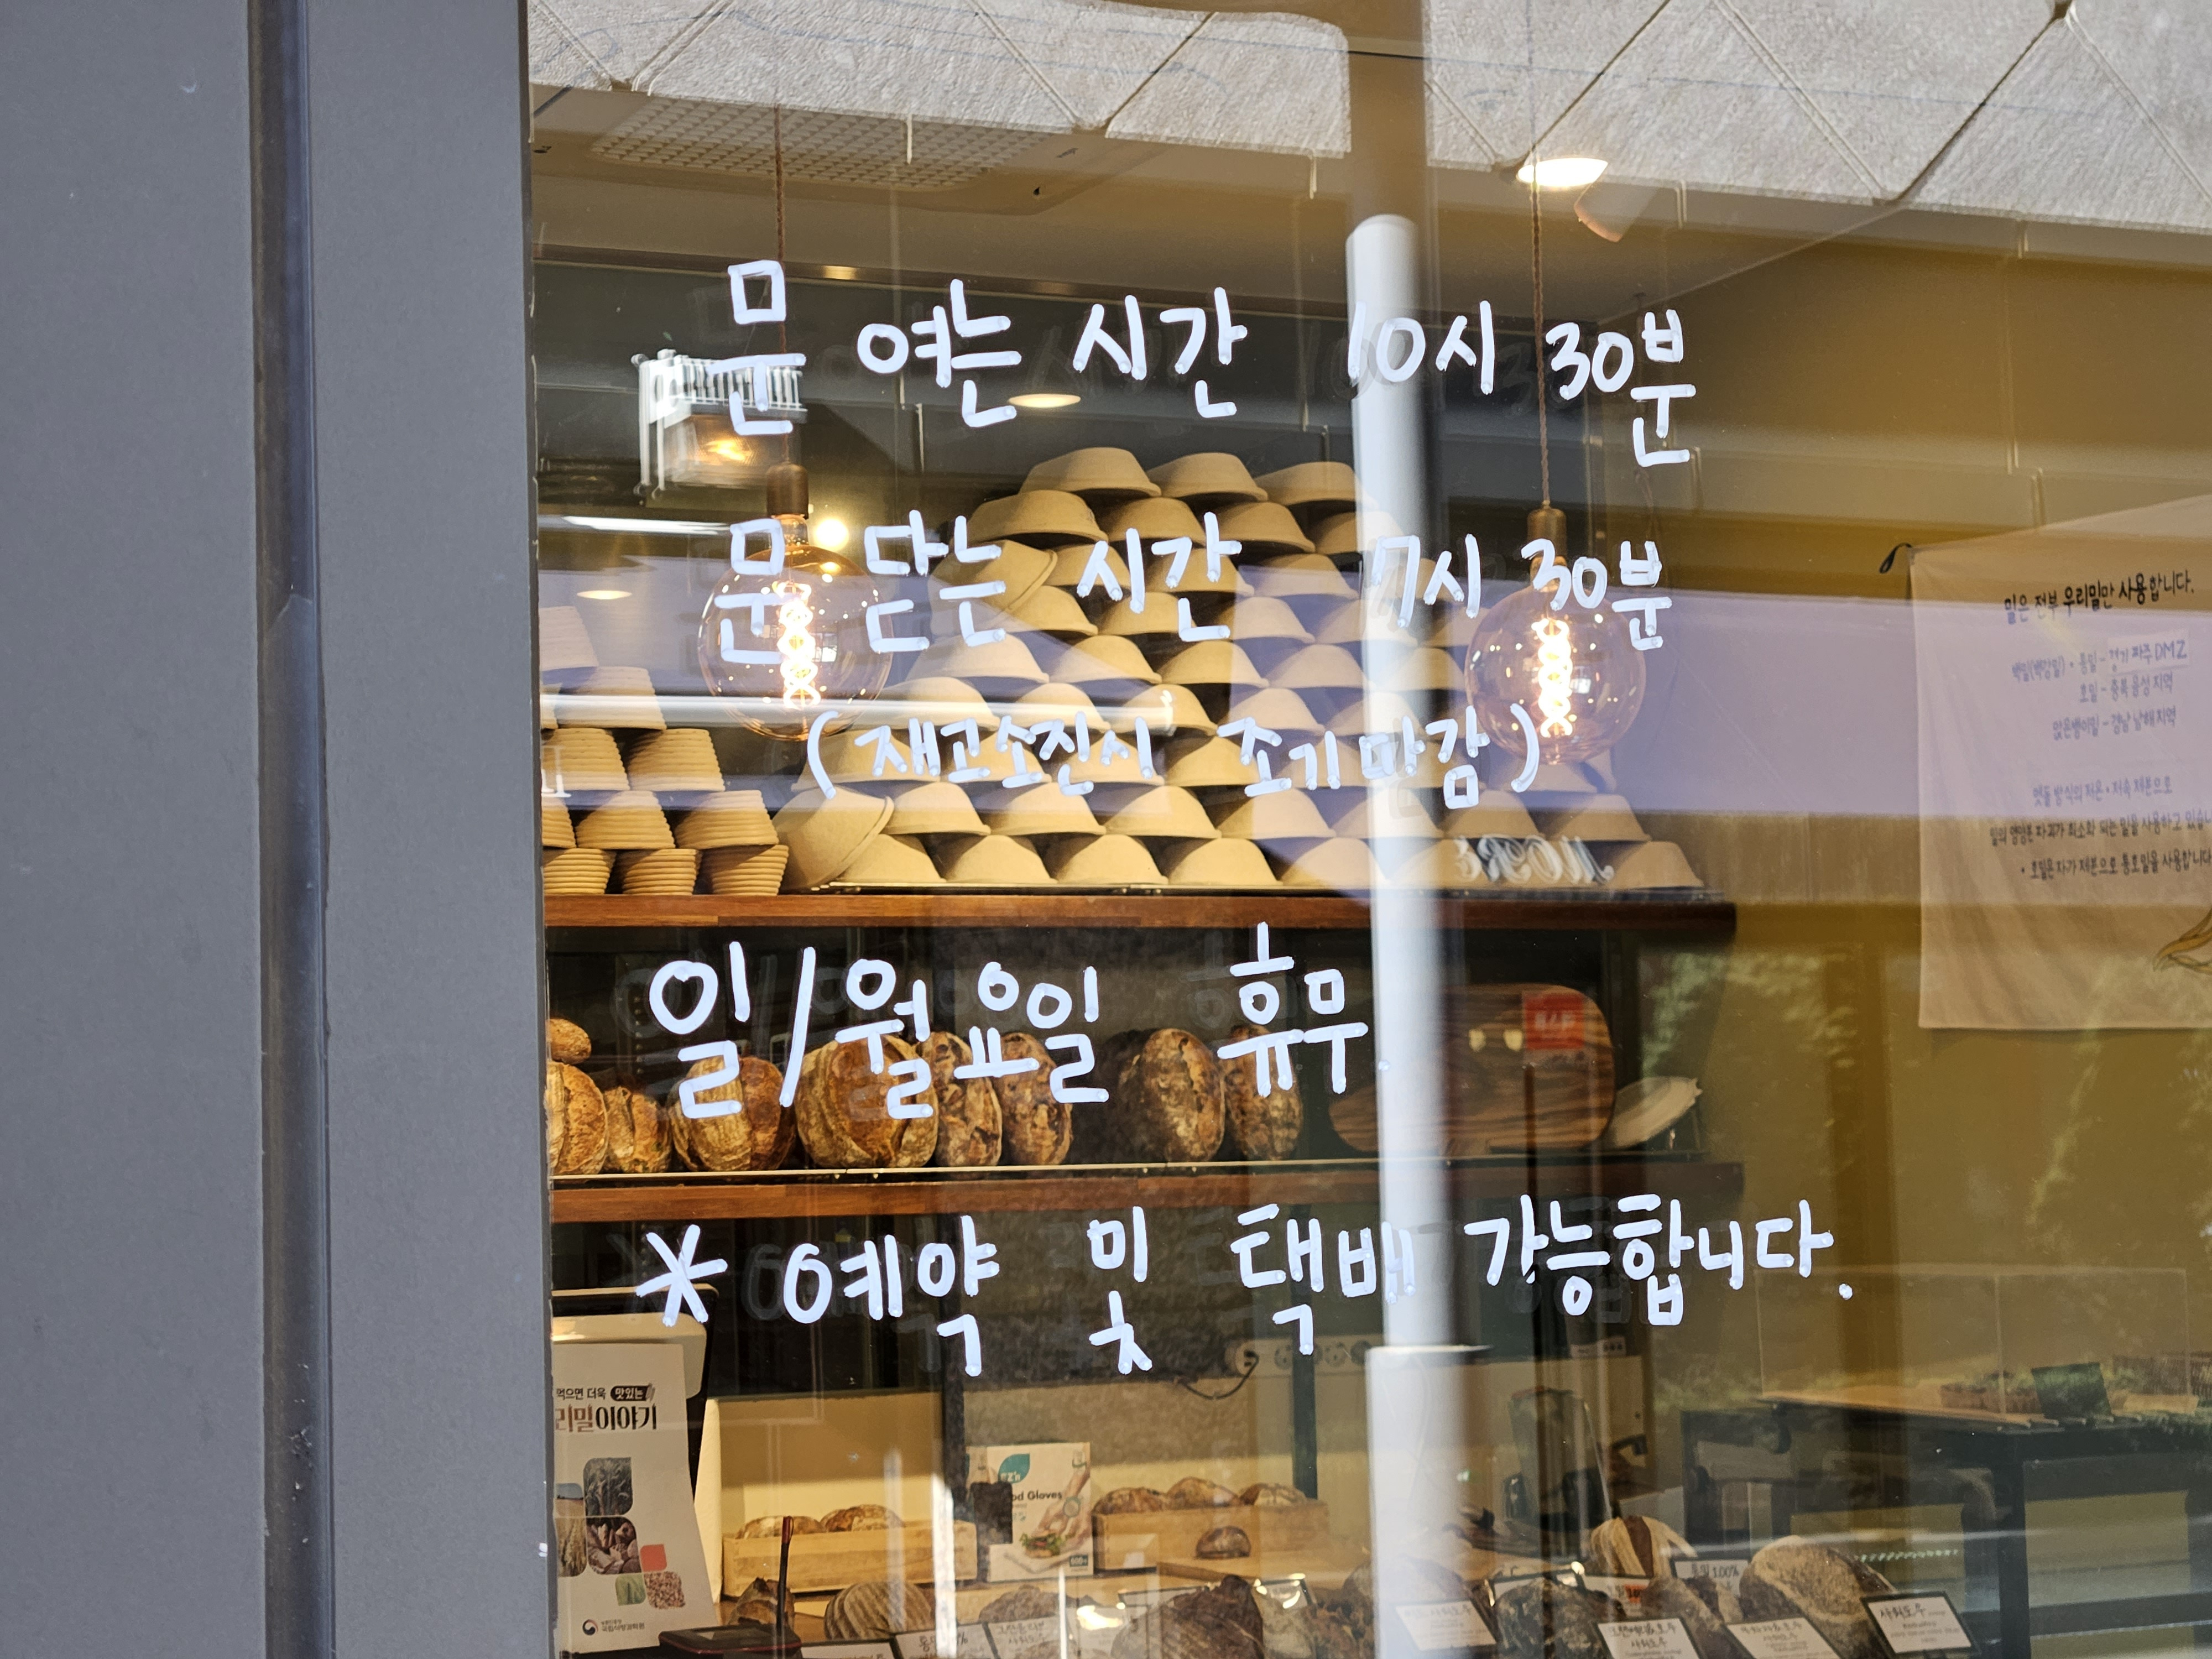 문 여는 시간 10시 30분
문 닫는 시간 7시 30분
(재고소진시 조기마감)
일/월요일 휴무.
* 예약 및 택배 가능합니다.
밀은 전부 우리밀만 사용합니다.
통밀 - 경기 파주 DMZ
호밀 - 충북 음성지역
앉은뱅이밀 - 경남 남해지역
맷돌 방식의 저온 • 저속 제분으로
• 호밀은 자가 제분으로 통호밀을 사용합니다
먹으면 더욱 맛있는
리밀이야기
od Gloves
통밀 100%
사워도우
사워도우